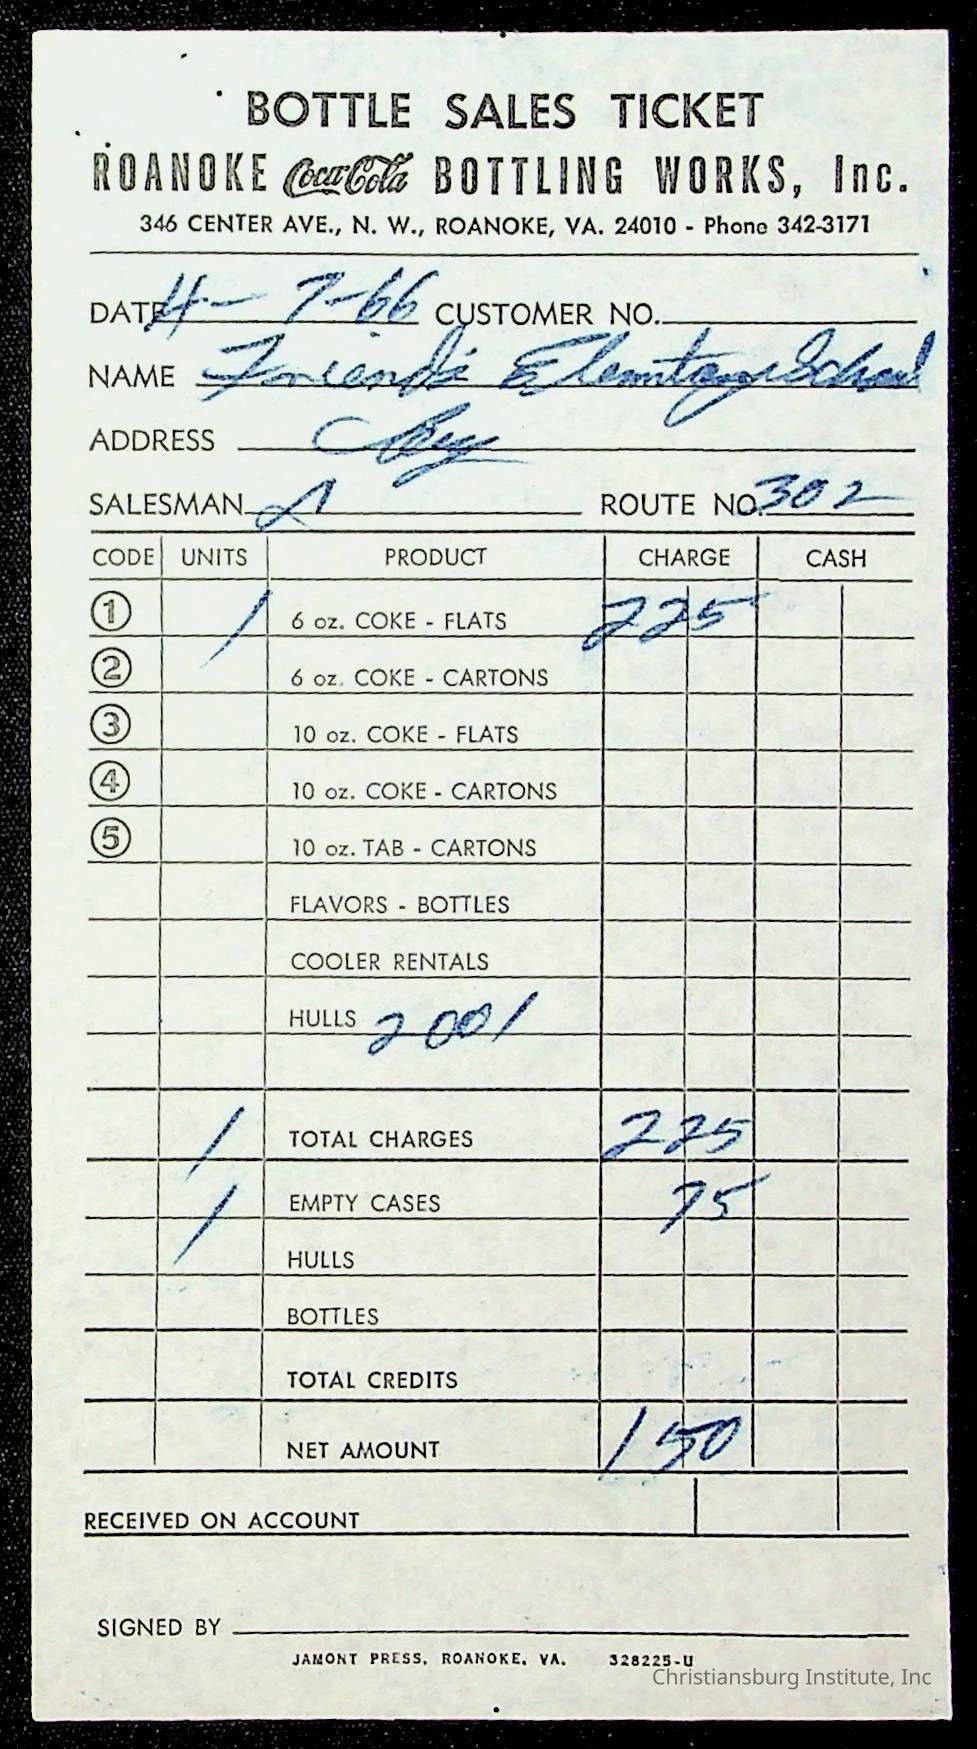 BOTTLE SALES TICKET
ROANOKE Coca-Cola BOTTLING WORKS, Inc.
346 CENTER AVE., N. W., ROANOKE, VA. 24010 - Phone 342-3171
DATE 4-7-66 CUSTOMER NO.
NAME Friends Elemntary School
ADDRESS
SALESMAN ROUTE NO. 302
CODE UNITS PRODUCT CHARGE CASH
1 1 6 oz. COKE - FLATS 2 25
2 6 oz. COKE - CARTONS
3 10 oz. COKE - FLATS
4 10 oz. COKE - CARTONS
5 10 oz. TAB - CARTONS
FLAVORS - BOTTLES
COOLER RENTALS
HULLS 2001
1 TOTAL CHARGES 2 25
1 EMPTY CASES 75
HULLS
BOTTLES
TOTAL CREDITS
NET AMOUNT 1 50
RECEIVED ON ACCOUNT
SIGNED BY
JAMONT PRESS, ROANOKE, VA. 328225-U
Christiansburg Institute, Inc